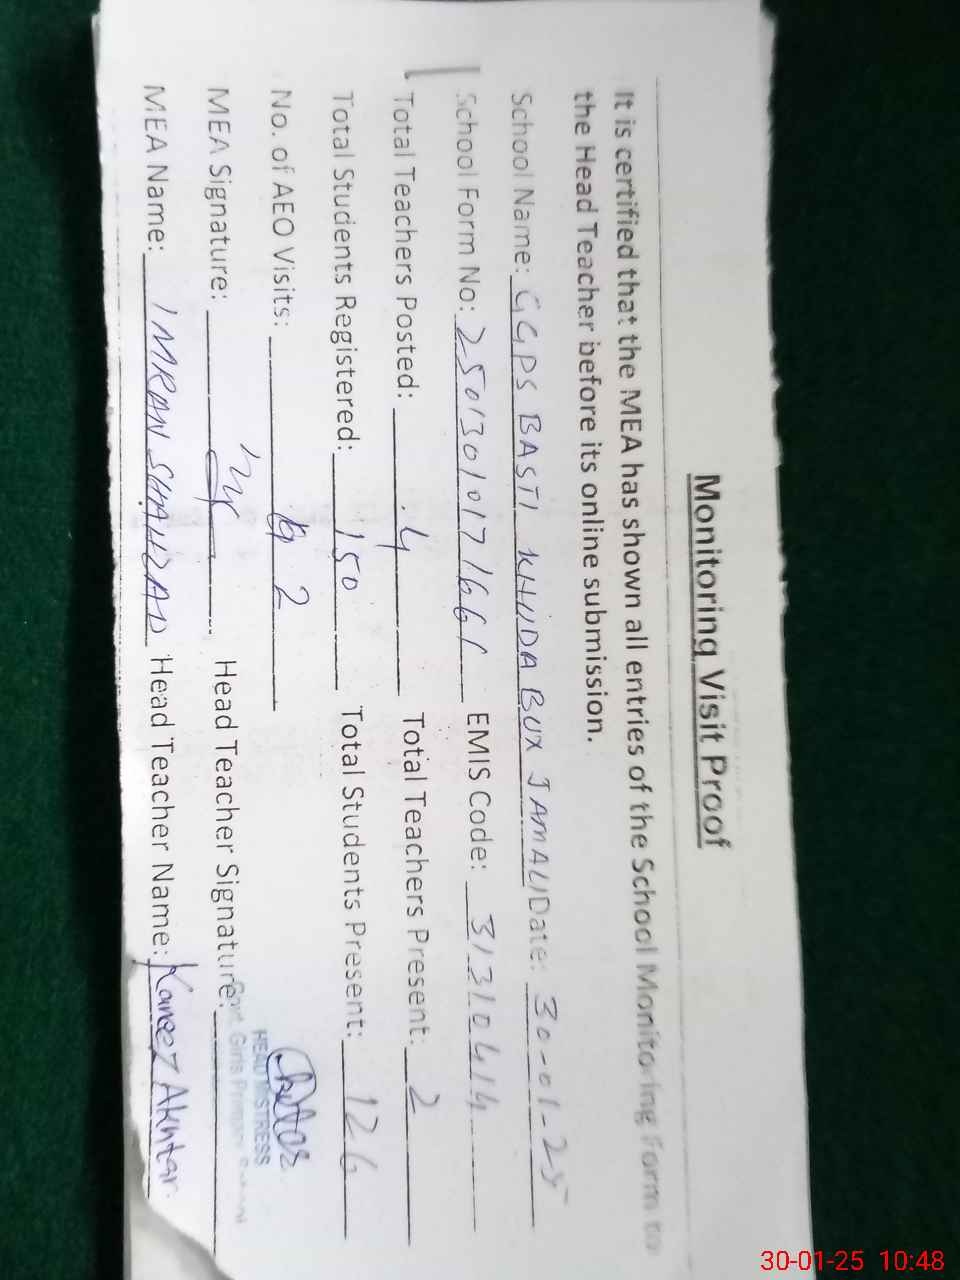 Monitoring Visit Proof
It is certified that the MEA has shown all entries of the School Monitoring Form to
the Head Teacher before its online submission.
School Name: GGPS BASTI KHUDA BUX JAMALI Date: 30-01-25
School Form No: 25013010171661 EMIS Code: 31310414
Total Teachers Posted: 4 Total Teachers Present: 2
Total Students Registered: 150 Total Students Present: 126
No. of AEO Visits: 2
MEA Signature: Head Teacher Signature:
HEAD MISTRESS
Govt. Girls Primary School
MEA Name: IMRAN SHAHZAD Head Teacher Name: Kaneez Akhtar
30-01-25 10:48